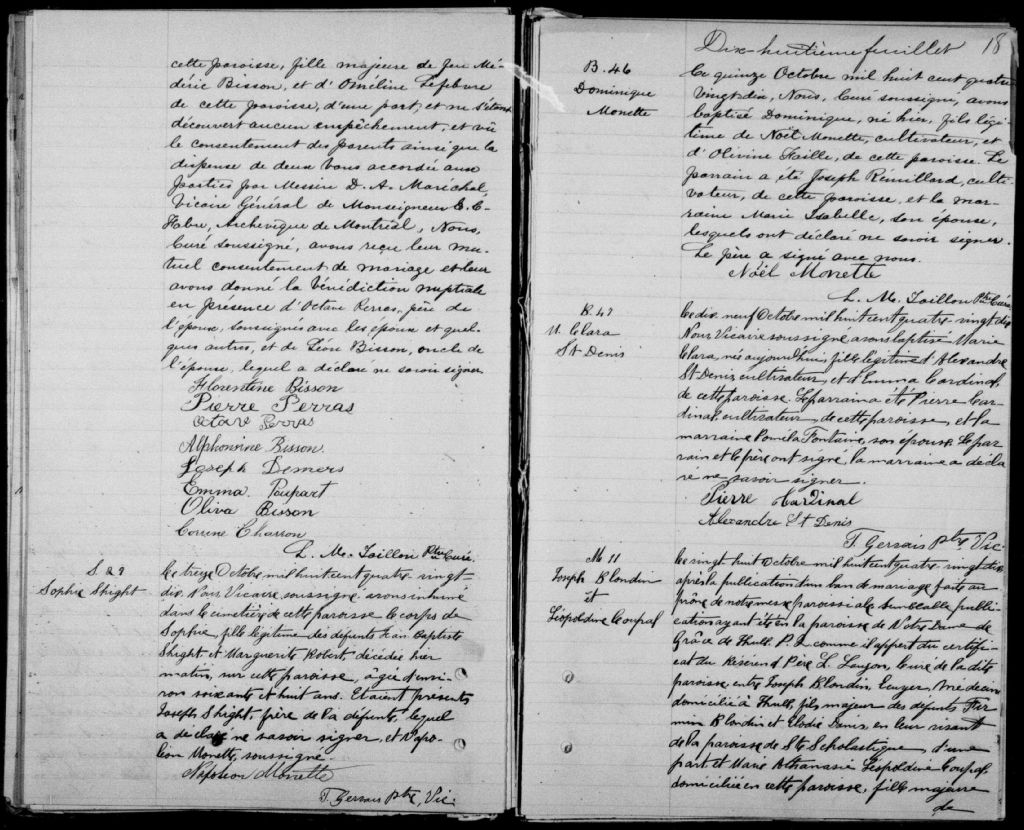 cette paroisse, fille majeure de feu Mé-
déric Bisson, et d'Oméline Lefebvre
de cette paroisse, d'une part, et ne s'étant
découvert aucun empêchement, et vû
le consentement des parents ainsi que la
dispense de deux bans accordé aux
parties par Messire D. A. Maréchal,
Vicaire Général de Monseigneur E. C.
Fabre, Archevêque de Montréal, Nous,
Curé soussigné, avons reçu leur mu-
tuel consentement de mariage et leur
avons donné la bénédiction nuptiale
en présence d'Octave Perras, père de
l'époux, soussignés avec les époux et quel-
ques autres, et de Léon Bisson, oncle de
l'épouse, lequel a déclaré ne savoir signer
Florentine Bisson
Pierre Perras
Octav Perras
Alphonsine Bisson
Joseph Demers
Emma Poupart
Oliva Bisson
Corrine Charron
L. M. Taillon Ptre Curé.
S.
Sophie Shight
Le treize Octobre mil huit cent quatre-vingt-
dix Nous Vicaire soussigné avons inhumé
dans le cimetière de cette paroisse le corps de
Sophie, fille légitime des défunts Jean Baptiste
Shight et Marguerite Robert, décédée hier
matin, sur cette paroisse, âgée d'envi-
ron soixante et huit ans. Etaient présents
Joseph Shight, frère de la défunte, lequel
a déclaré ne savoir signer, et Napo-
léon Monette, soussigné.
Napoléon Monette
T. Gervais Ptre, Vic.
Dix-huitième feuillet 18
B. 46
Dominique
Monette
Ce quinze Octobre mil huit cent quatre
vingt dix, Nous, Curé soussigné, avons
baptisé Dominique, né hier, fils légi-
time de Noël Monette, cultivateur, et
d'Olivine Faille, de cette paroisse. Le
parrain a été Joseph Rémillard, culti-
vateur, de cette paroisse, et la mar-
raine Marie Isabelle, son épouse,
lesquels ont déclaré ne savoir signer.
Le père a signé avec nous.
Noël Monette
L. M. Taillon Ptre Curé
B. 47
M. Clara
St-Denis
Le dix-neuf Octobre mil huit cent quatre-vingt dix
Nous Vicaire soussigné avons baptisé Marie
Clara, née aujourd'hui, fille légitime d'Alexandre
St-Denis, cultivateur, et d'Emma Cardinal,
de cette paroisse. Le parrain a été Pierre Car-
dinal, cultivateur, de cette paroisse, et la
marraine Poméla Fontaine, son épouse. Le par-
rain et le père ont signé, la marraine a décla-
ré ne savoir signer.
Pierre Cardinal
Alexandre St Denis
T. Gervais Ptre, Vic.
M 11
Joseph Blondin
et
Léopoldine Coupal
Le vingt huit Octobre mil huit cent quatre-vingt-dix
après la publication d'un ban de mariage faite au
prône de notre messe paroissiale semblable publi-
cation ayant été en la paroisse de Notre Dame de
Grâce de Hull, P. Q. comme il appert du certifi-
cat du Révérend Père L. Lauzon, Curé de la dite
paroisse entre Joseph Blondin, Ecuyer, Médecin
domicilié à Hull, fils majeur des défunts Fir-
min Blondin et Elodie Denis, en leur vivant
de la paroisse de Ste Scholastique, d'une
part et Marie Athanasie Léopoldine Coupal,
domiciliée en cette paroisse, fille majeure
de